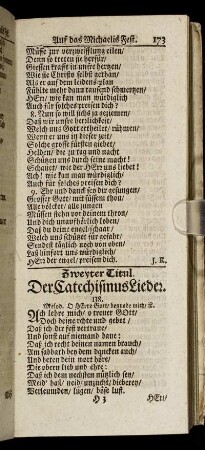 Auf das Michaelis Fest. 173
Müsse zur verzweifflung eilen/
Denn so treten sie herfür/
Giessen krafft in unser hertzen/
Wie sie Christo selbst gethan/
Als er auf dem leidens-plan
Fühlte mehr dann tausend schmertzen/
HErr/ wie kan man würdiglich
Auch für solches preisen dich?
8. Nun so will sichs ja geziemen/
Daß wir unsre herzlichkeit/
Welch uns Gott ertheilet/ rühmen/
Wenn er uns in dieser zeit/
Solche grosse fürsten giebet/
Helden/ die zu tag und nacht
Schützen uns durch seine macht!
Schauet/ wie der HErr uns liebet!
Ach! wie kan man würdiglich/
Auch für solches preisen dich?
9. Ehr und danck sey dir gesungen/
Grosser Gott/ mit süssem thon/
Alle völcker/ alle zungen
Müssen stehn vor deinem thron/
Und dich unaufhörlich loben/
Daß du deine engel-schaar/
Welch uns schützet für gefahr/
Sendest täglich noch von oben/
Laß hinfort uns würdiglich/
HErr der engel/ preisen dich. J. R.
Zweyter Titul.
Der Catechismus Lieder.
118.
Melod. O HErre Gott/ begnade mich/ 2c.
ACh lehre mich/ o treuer GOtt/
Doch deine zehn gebot/
Daß ich dir fest vertraue/
Und sonst auf niemand baue:
Daß ich recht deinen namen brauch/
Am sabbath bey dem
Und beten dein wort höre/
Die obern lieb und ehre:
Daß ich dem nechsten nützlich sey/
Meid' haß/ neid/ unzucht/ dieberey/
Verleumden/ lügen/ böse lust.
H 3 HErr/